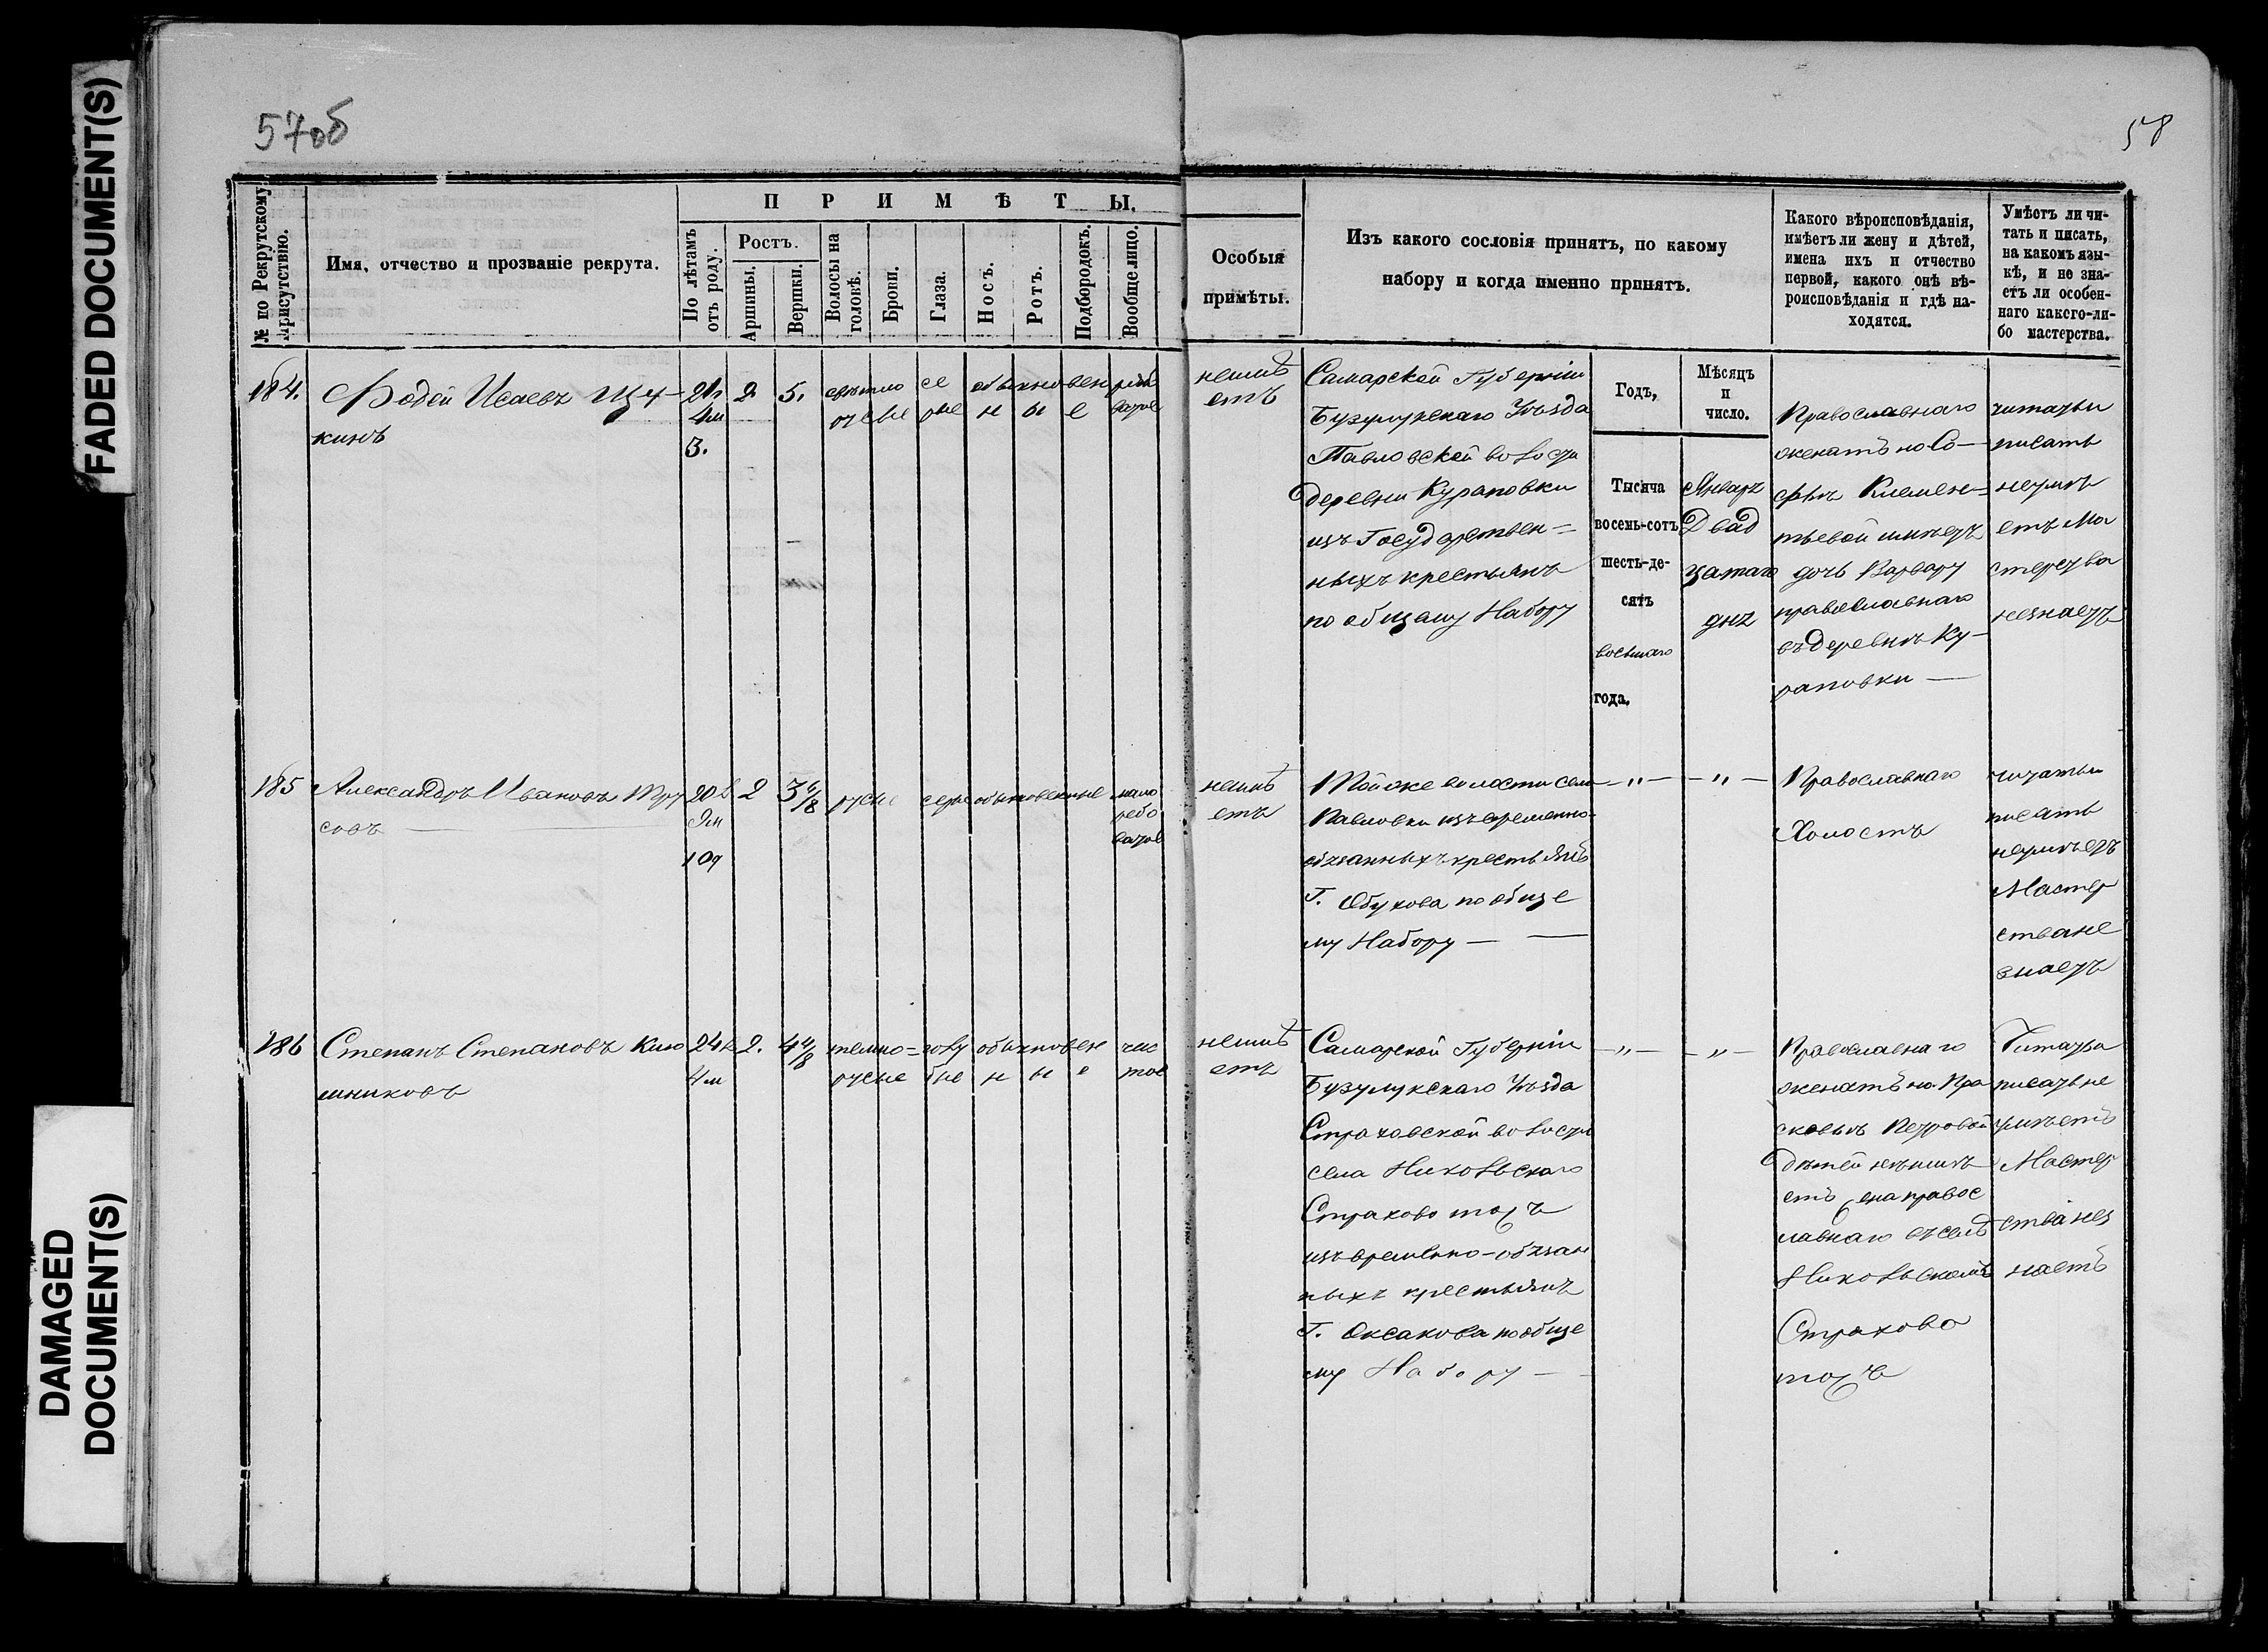 FADED DOCUMENT(S)
DAMAGED
DOCUMENT(S)
57об
58
№ по Рекрутскому
присутствію.
Имя, отчество и прозваніе рекрута.
ПРИМѢТЫ.
По лѣтамъ
отъ роду.
Ростъ.
Аршины.
Вершки.
Волосы на
головѣ.
Брови.
Глаза.
Носъ.
Ротъ.
Подбородокъ.
Вообще лицо.
Особыя
примѣты.
Изъ какого сословія принятъ, по какому
набору и когда именно принятъ.
Какого вѣроисповѣданія,
имѣетъ ли жену и дѣтей,
имена ихъ и отчество
первой, какого онѣ вѣ-
роисповѣданія и гдѣ на-
ходятся.
Умѣетъ ли чи-
тать и писать,
на какомъ язы-
кѣ, и не зна-
етъ ли особен-
наго какого-ли-
бо мастерства.
184.
Исаевъ
кинъ
21
4м
2
5.
свѣтло
русые
се
рые
обыкновен
н ы е
неимѣ
етъ
Самарской Губерніи
Бузулукскаго Уѣзда
Павловской волости
деревни Кураповки
изъ Государствен=
ныхъ крестьянъ
по общему Набору
Годъ,
Тысяча
восемь-сотъ
шесть-де-
сятъ
восьмаго
года.
Мѣсяцъ
и
число.
Январ
Двад
цатаго
дня
Православнаго
женатъ на Со-
фьѣ Клемен=
тьевой имѣетъ
дочь Варвару
православнаго
въ деревнѣ Ку-
раповки —
читать и
писать
неумѣ
етъ Ма
стерства
незнаетъ
185
Александръ Ивановъ Тру
совъ —
20 л
9м
10д
2
3 6/8
русые
серые
обыкновенные
мало
рябо
ватое
неимѣ
етъ
Тойже волости села
Павловки изъ временно-
обязанныхъ крестьянъ
Г. Обухова по обще
му Набору — —
— " —
— " —
Православнаго
Холостъ
читать и
писать
неумѣетъ
Мастер
ства не
знаетъ
186
Степанъ Степановъ Клю
шниковъ
24 л
4м
2.
4 4/8
темно=
русые
голу
бые
обыкновен
н ы е
чис
тое
неимѣ
етъ
Самарской Губерніи
Бузулукскаго Уѣзда
Страховской волости
села Никольскаго
Страхово тожъ
изъ временно-обязан
ныхъ крестьянъ
Г. Оксакова по обще
му Набору —
— " —
— " —
Православнаго
женатъ на Пра
сковьѣ Петровой
дѣтей неимѣ
етъ она правос
лавнаго въ селѣ
Никольскомъ
Страхово
тожъ
Читать и
писать не
умѣетъ
Мастер
ства нез
наетъ